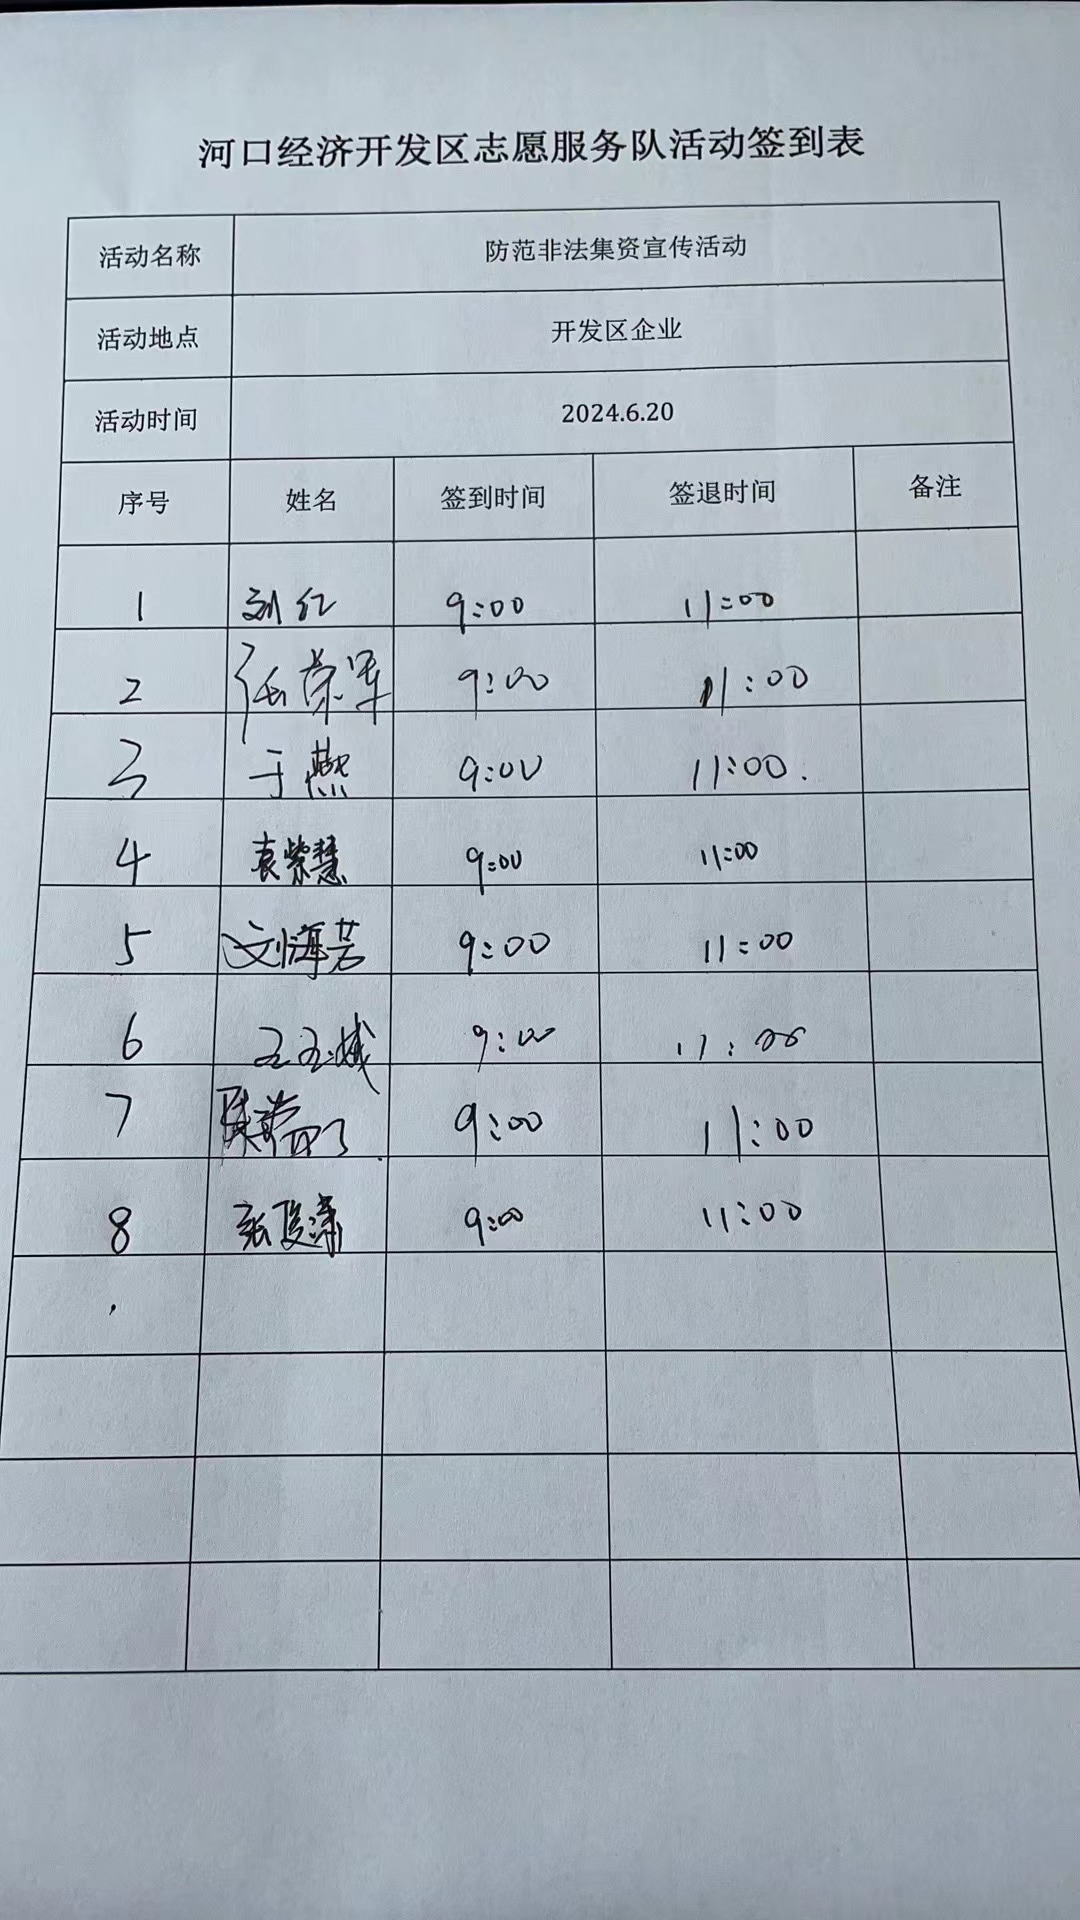 河口经济开发区志愿服务队活动签到表
活动名称 防范非法集资宣传活动
活动地点 开发区企业
活动时间 2024.6.20
序号 姓名 签到时间 签退时间 备注
1 刘红 9:00 11:00
2 任荣军 9:00 11:00
3 于燕 9:00 11:00.
4 袁紫慧 9:00 11:00
5 刘海芳 9:00 11:00
6 9:00 11:00
7 9:00 11:00
8 张俊涛 9:00 11:00